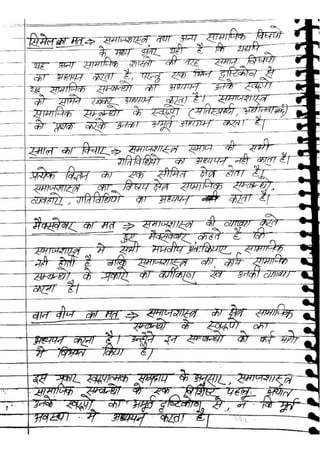 सिमेल का मत → समाजशास्त्र तथा अन्य सामाजिक विषयों
के मध्य अंतर यही है कि यद्यपि
यह अन्य सामाजिक शास्त्रों की तरह समान विषयों
का अध्ययन करता है, परन्तु एक भिन्न दृष्टिकोण से
यह सामाजिक सम्बन्धों का अध्ययन उनके स्वरूपों
को सामने रखकर अध्ययन करता है। समाजशास्त्र
सामाजिक सम्बन्धों के स्वरूपों
को पृथक करके उनका अमूर्त अध्ययन करता है।
स्माल का विचार → समाजशास्त्र समाज की सभी
गतिविधियों का अध्ययन नहीं करता है।
प्रत्येक विज्ञान का एक सीमित क्षेत्र होता है।
समाजशास्त्र का विषय क्षेत्र सामाजिक सम्बन्धों,
व्यवहारों, गतिविधियों का अध्ययन करता है।
मैक्स वेबर का मत → समाजशास्त्र की व्याख्या करते
हुए मैक्सवेबर कहते है कि
समाजशास्त्र में सभी मानवीय अंतःक्रियाएं सामाजिक
नहीं होती है बल्कि समाजशास्त्र का कार्य सामाजिक
सम्बन्धों के प्रकारों का वर्गीकरण एवं उनकी व्याख्या
करना है।
वान वीज का मत → समाजशास्त्र का क्षेत्र सामाजिक
सम्बन्धों के स्वरूपों का
अध्ययन करना है। इन्होंने इन सम्बन्धों को कई भागों
में विभक्त किया है।
इस प्रकार स्वरूपात्मक सम्प्रदाय के अनुसार, समाजशास्त्र
सामाजिक सम्बन्धों के एक विशिष्ट पहलू अर्थात
उनके स्वरूपों का अमूर्त दृष्टिकोण से, न कि मूर्त
अवस्था में अध्ययन करता है।